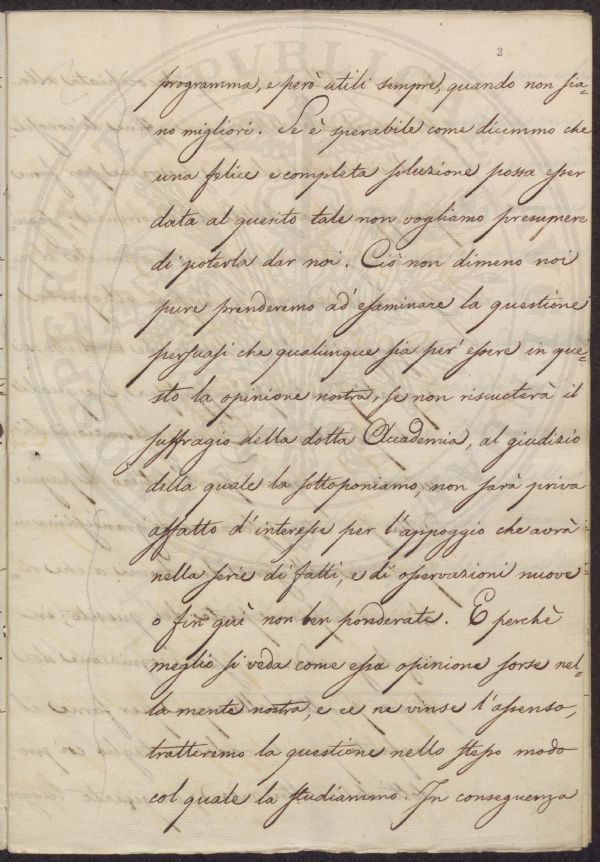 2
programma, e però utili sempre, quando non sia=
no migliori. Se è sperabile come dicemmo che
una felice e completa soluzione possa esser
data al quesito tale non vogliamo presumere
di poterla dar noi. Ciò non dimeno noi
pure prenderemo ad' essaminare la questione
persuasi che qualunque sia per' essere in que=
sto la opinione nostra, se non riscuoterà il
suffragio della dotta Accademia, al giudizio
della quale la sottoponiamo, non sarà priva
affatto d'interesse per l'appoggio che avrà
nella serie di fatti, e di osservazioni nuove
o fin quì non ben ponderate. E perchè
meglio si veda come essa opinione sorse nel=
la mente nostra, e ce ne vinse l'assenso,
tratteremo la questione nello stesso modo
col quale la studiammo. In conseguenza